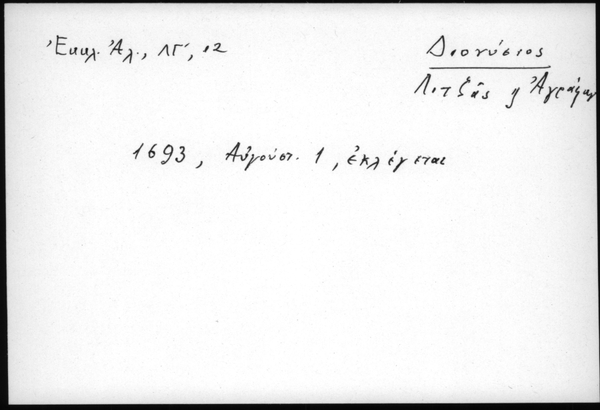 Ἐκκλ. Ἀλ., ΛΓ΄, 12
Διονύσιος
Λιτζᾶς ἤ Ἀγράφων
1693, Αὐγούστ. 1, ἐκλέγεται